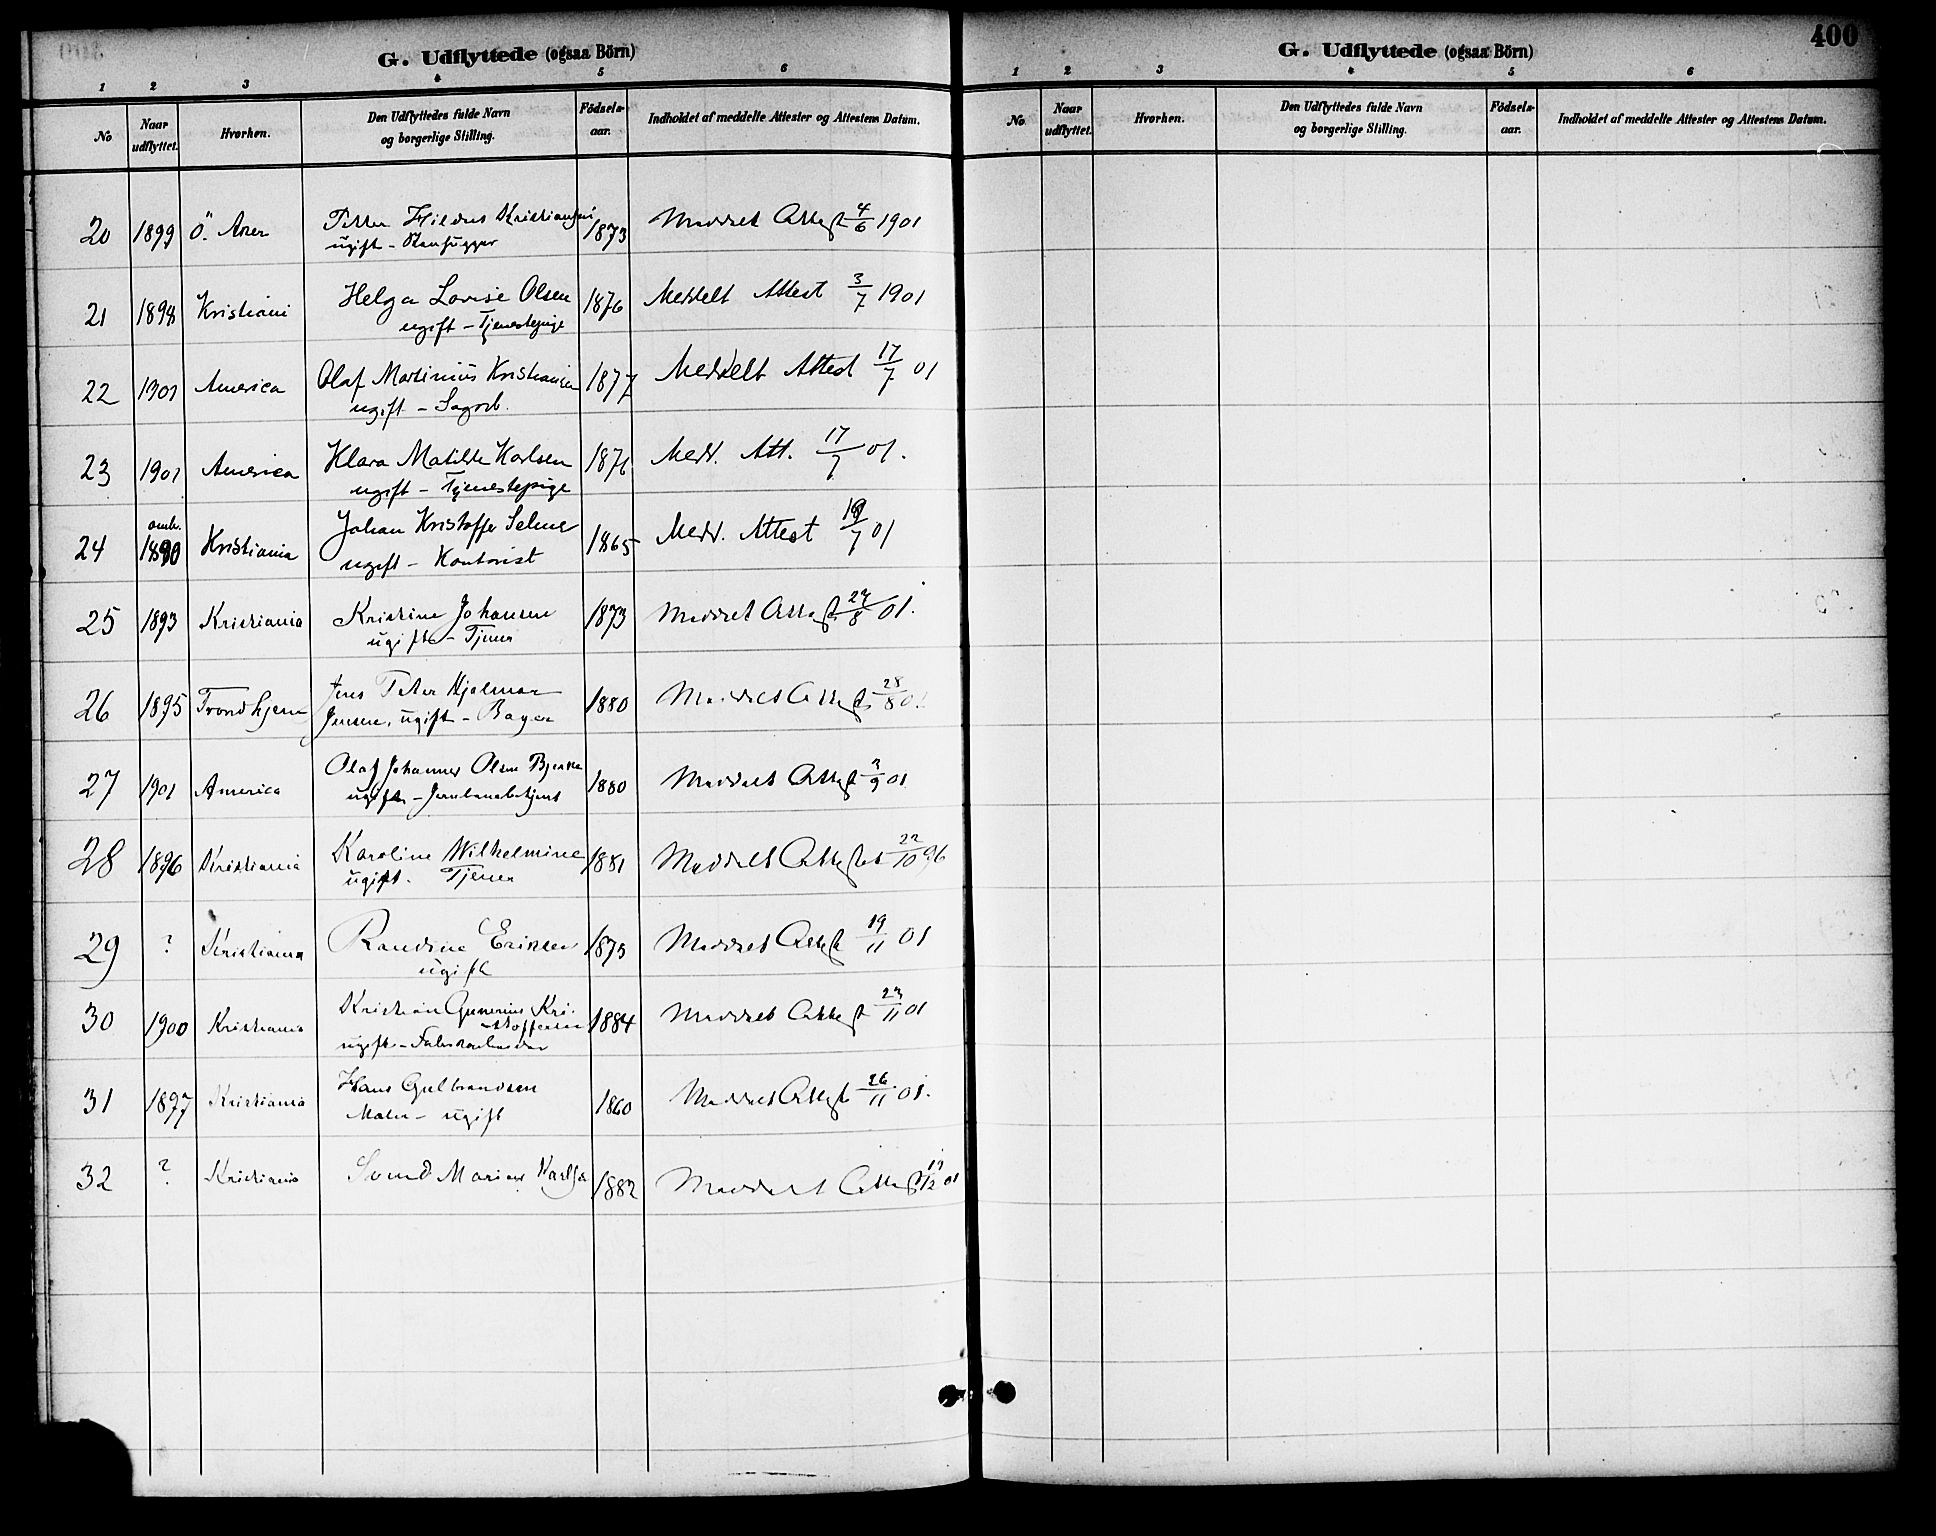 G. Udflyttede (ogsaa Börn)
1 2 3 4 5 6
No
Naar udflyttet.
Hvorhen.
Den Udflyttedes fulde Navn og borgerlige Stilling.
Födsels-aar.
Indholdet af meddelte Attester og Attestens Datum.
20 1899 Ö. Aker Kristiansen 1873 Meddelt Attest 4/6 1901
ugift - Stenhugger
21 1898 Kristiani Helga Lovise Olsen 1876 Meddelt Attest 3/7 1901
ugift - Tjenestepige
22 1901 America Olaf Martinius Kristiansen 1877 Meddelt Attest 17/7 01
ugift - Sagarb.
23 1901 America Klara Matilde Karlsen 1876 Medd. Att. 17/7 01.
ugift - Tjenestepige
24 omkr. 1890 Kristiania Johan Kristoffer Selmer 1865 Medd. Attest /7 01
ugift - Kontorist
25 1893 Kristiania Kristine Johansen 1873 Meddelt Attest /8 01.
ugift - Tjener
26 1895 Trondhjem Jens Peter Hjalmar 1880 Meddelt Attest 28/8 01.
Jensen, ugift - Bager
27 1901 America Olaf Johannes Olsen 1880 Meddelt Attest 3/9 01
ugift - Jernbanebetjent
28 1896 Kristiania Karoline Wilhelmine 1881 Meddelt Attest 22/10 96
ugift. Tjener
29 ? Kristiania Randine Eriksen 1873 Meddelt Attest 19/11 01
ugift
30 1900 Kristiania Kristian Gunerius Kri- 1884 Meddelt Attest 23/11 01
stoffersen
ugift - Fabrikarbeider
31 1897 Kristiania Hans Gulbrandsen 1860 Meddelt Attest 26/11 01.
Maler - ugift
32 ? Kristiania Svend Marius 1882 Meddelt Attest /12 01
400
G. Udflyttede (ogsaa Börn)
1 2 3 4 5 6
No
Naar udflyttet.
Hvorhen.
Den Udflyttedes fulde Navn og borgerlige Stilling.
Födsels-aar.
Indholdet af meddelte Attester og Attestens Datum.